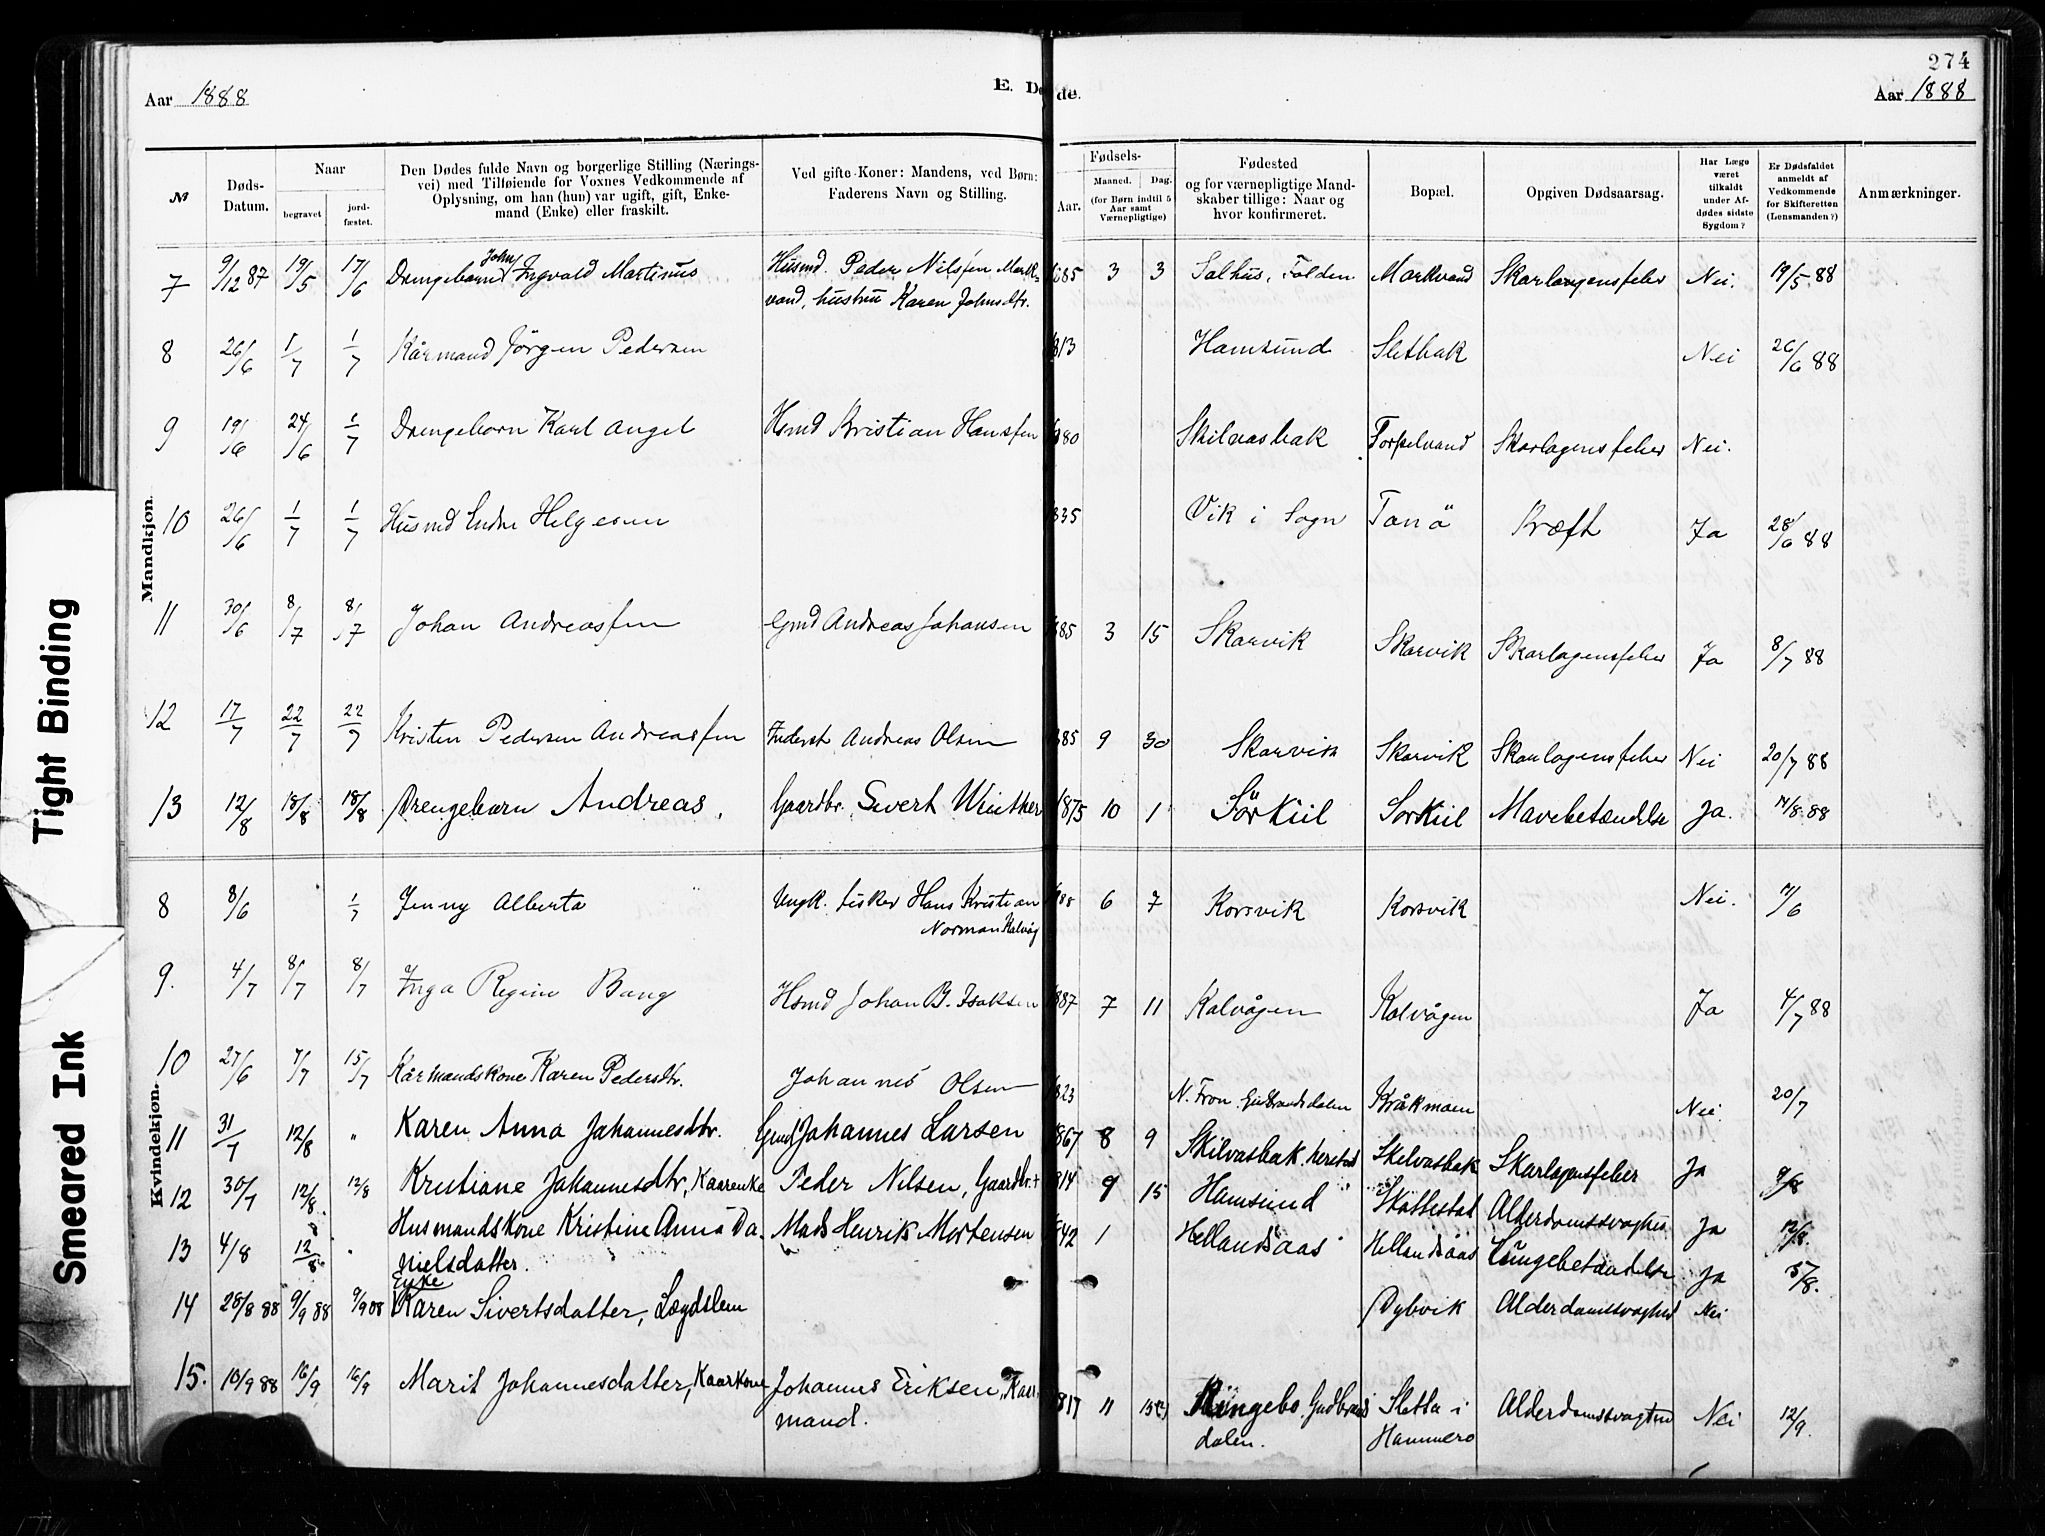 274
Aar 1888
E. Døde.
Aar 1888
№
Døds-Datum.
Naar
begravet
jordfæstet.
Den Dødes fulde Navn og borgerlige Stilling (Nærings-
vei) med Tilføiende for Voxnes Vedkommende af
Oplysning, om han (hun) var ugift, gift, Enke-
mand (Enke) eller fraskilt.
Ved gifte Koner: Mandens, ved Børn:
Faderens Navn og Stilling.
Fødsels-
Aar.
Maaned.
Dag.
(for Børn indtil 5
Aar samt
Værnepligtige)
Fødested
og for værnepligtige Mand-
skaber tillige: Naar og
hvor konfirmeret.
Bopæl.
Opgiven Dødsaarsag.
Har Læge
været
tilkaldt
under Af-
dødes sidste
Sygdom?
Er Dødsfaldet
anmeldt af
Vedkommende
for Skifteretten
(Lensmanden?)
Anmærkninger.
Mandkjøn.
7 9/12 87 19/5 17/6 Drengebarnet John Ingvald Martinus Husmd. Peder Nilsen Mark- 1885 3 3 Salhus, Folden Markvand Skarlagensfeber Nei. 19/5 88
vand, hustru Karen Johnsdtr.
8 26/6 1/7 1/7 Kårmand Jörgen Pedersen 1813 Hamsund Sletbak Nei 26/6 88
9 19/6 24/6 1/7 Drengebarn Karl Angel Hsmd Kristian Hansen 1880 Skilvasbak Forselvand Skarlagensfeber Nei.
10 26/6 1/7 1/7 Husmd Endre Helgesen 1835 Vik i Sogn Tanö Kræft Ja 28/6 88
11 30/6 8/7 8/7 Johan Andreassen Gmd Andreas Johansen 1885 3 15 Skarvik Skarvik Skarlagensfeber Ja 8/7 88
12 17/7 22/7 22/7 Kristen Pedersen Andreassen Inderst Andreas Olsen 1885 9 30 Skarvik Skarvik Skarlagensfeber Nei 20/7 88
13 12/8 18/8 18/8 Drengebarn Andreas. Gaardbr. Sivert Winther 1875 10 1 Sörkiil Sörkiil Mavebetændelse Ja. 14/8 88
Kvindekjøn.
8 8/6 1/7 Jenny Alberta Ungk. fisker Hans Kristian 1888 6 7 Korsvik Korsvik Nei. 11/6
Norman Kalvåg
9. 4/7 8/7 8/7 Inga Regine Bang Hsmd Johan B. Isaksen 1887 7 11 Kalvågen Kalvågen Ja 4/7 88
10 27/6 7/7 15/7 Kårmandskone Karen Pedersdtr. Johannes Olsen 1823 N. Fron. Gudbrandsdalen Kråkmoen Nei 20/7
11 31/7 12/8 " Karen Anna Johannesdtr. Gmd Johannes Larsen 1867 8 9 Skilvasbak Skilvasbak Skarlagensfeber Ja 9/8
12 30/7 12/8. 12/8 Kristiane Johannesdtr, Kaarenke Peder Nilsen, Gaardbr. + 1814 9 15 Hamsund Skottestad Alderdomssvaghed Ja 12/8.
13 4/8 12/8 " Husmandskone Kristine Anna Da- Mads Henrik Mortensen 1842 1 Hellandsaas Hellandsaas Lungebetændelse Ja 5/8.
nielsdatter.
14 28/8 88 9/9 88 9/9 88 Enke Karen Sivertsdatter, Lægdslem Dybvik Alderdomssvaghed Nei
15. 10/9 88 16/9 16/9 Marit Johannesdatter, Kaarkone Johannes Eriksen, Kaar- 1817 11 Ringebo Gudbrands- Sletta i Alderdomssvaghed Nei 12/9.
mand. dalen. Hammerø
Tight Binding
Smeared Ink